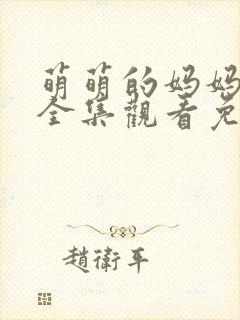 萌萌的妈妈
全集觀看免
趙衛平